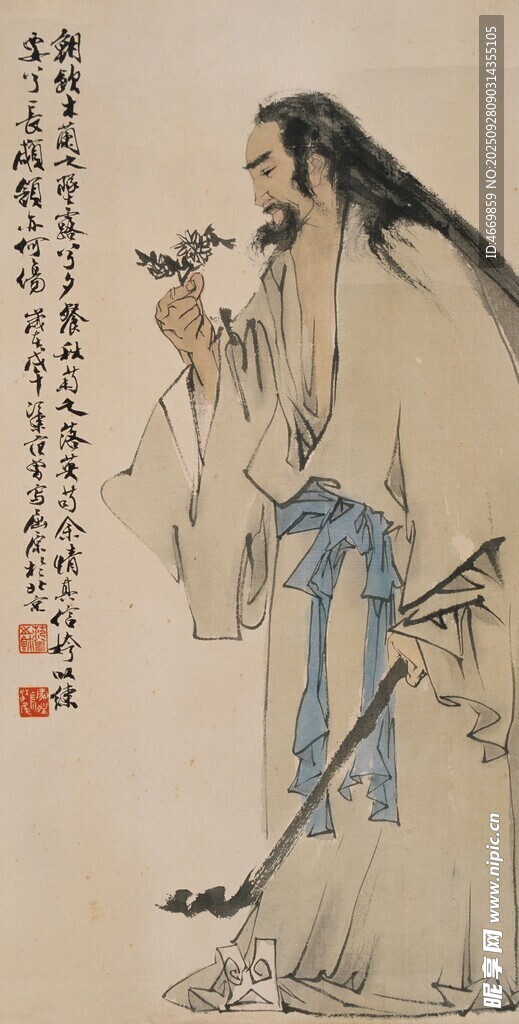 朝飲木蘭之墜露兮夕餐秋菊之落英苟余情其信姱以練
要兮長顑頷亦何傷 歲在戊午 江東范曾寫屈原於北京
ID:4669859 NO:20250928090314355105
昵享网 www.nipic.cn